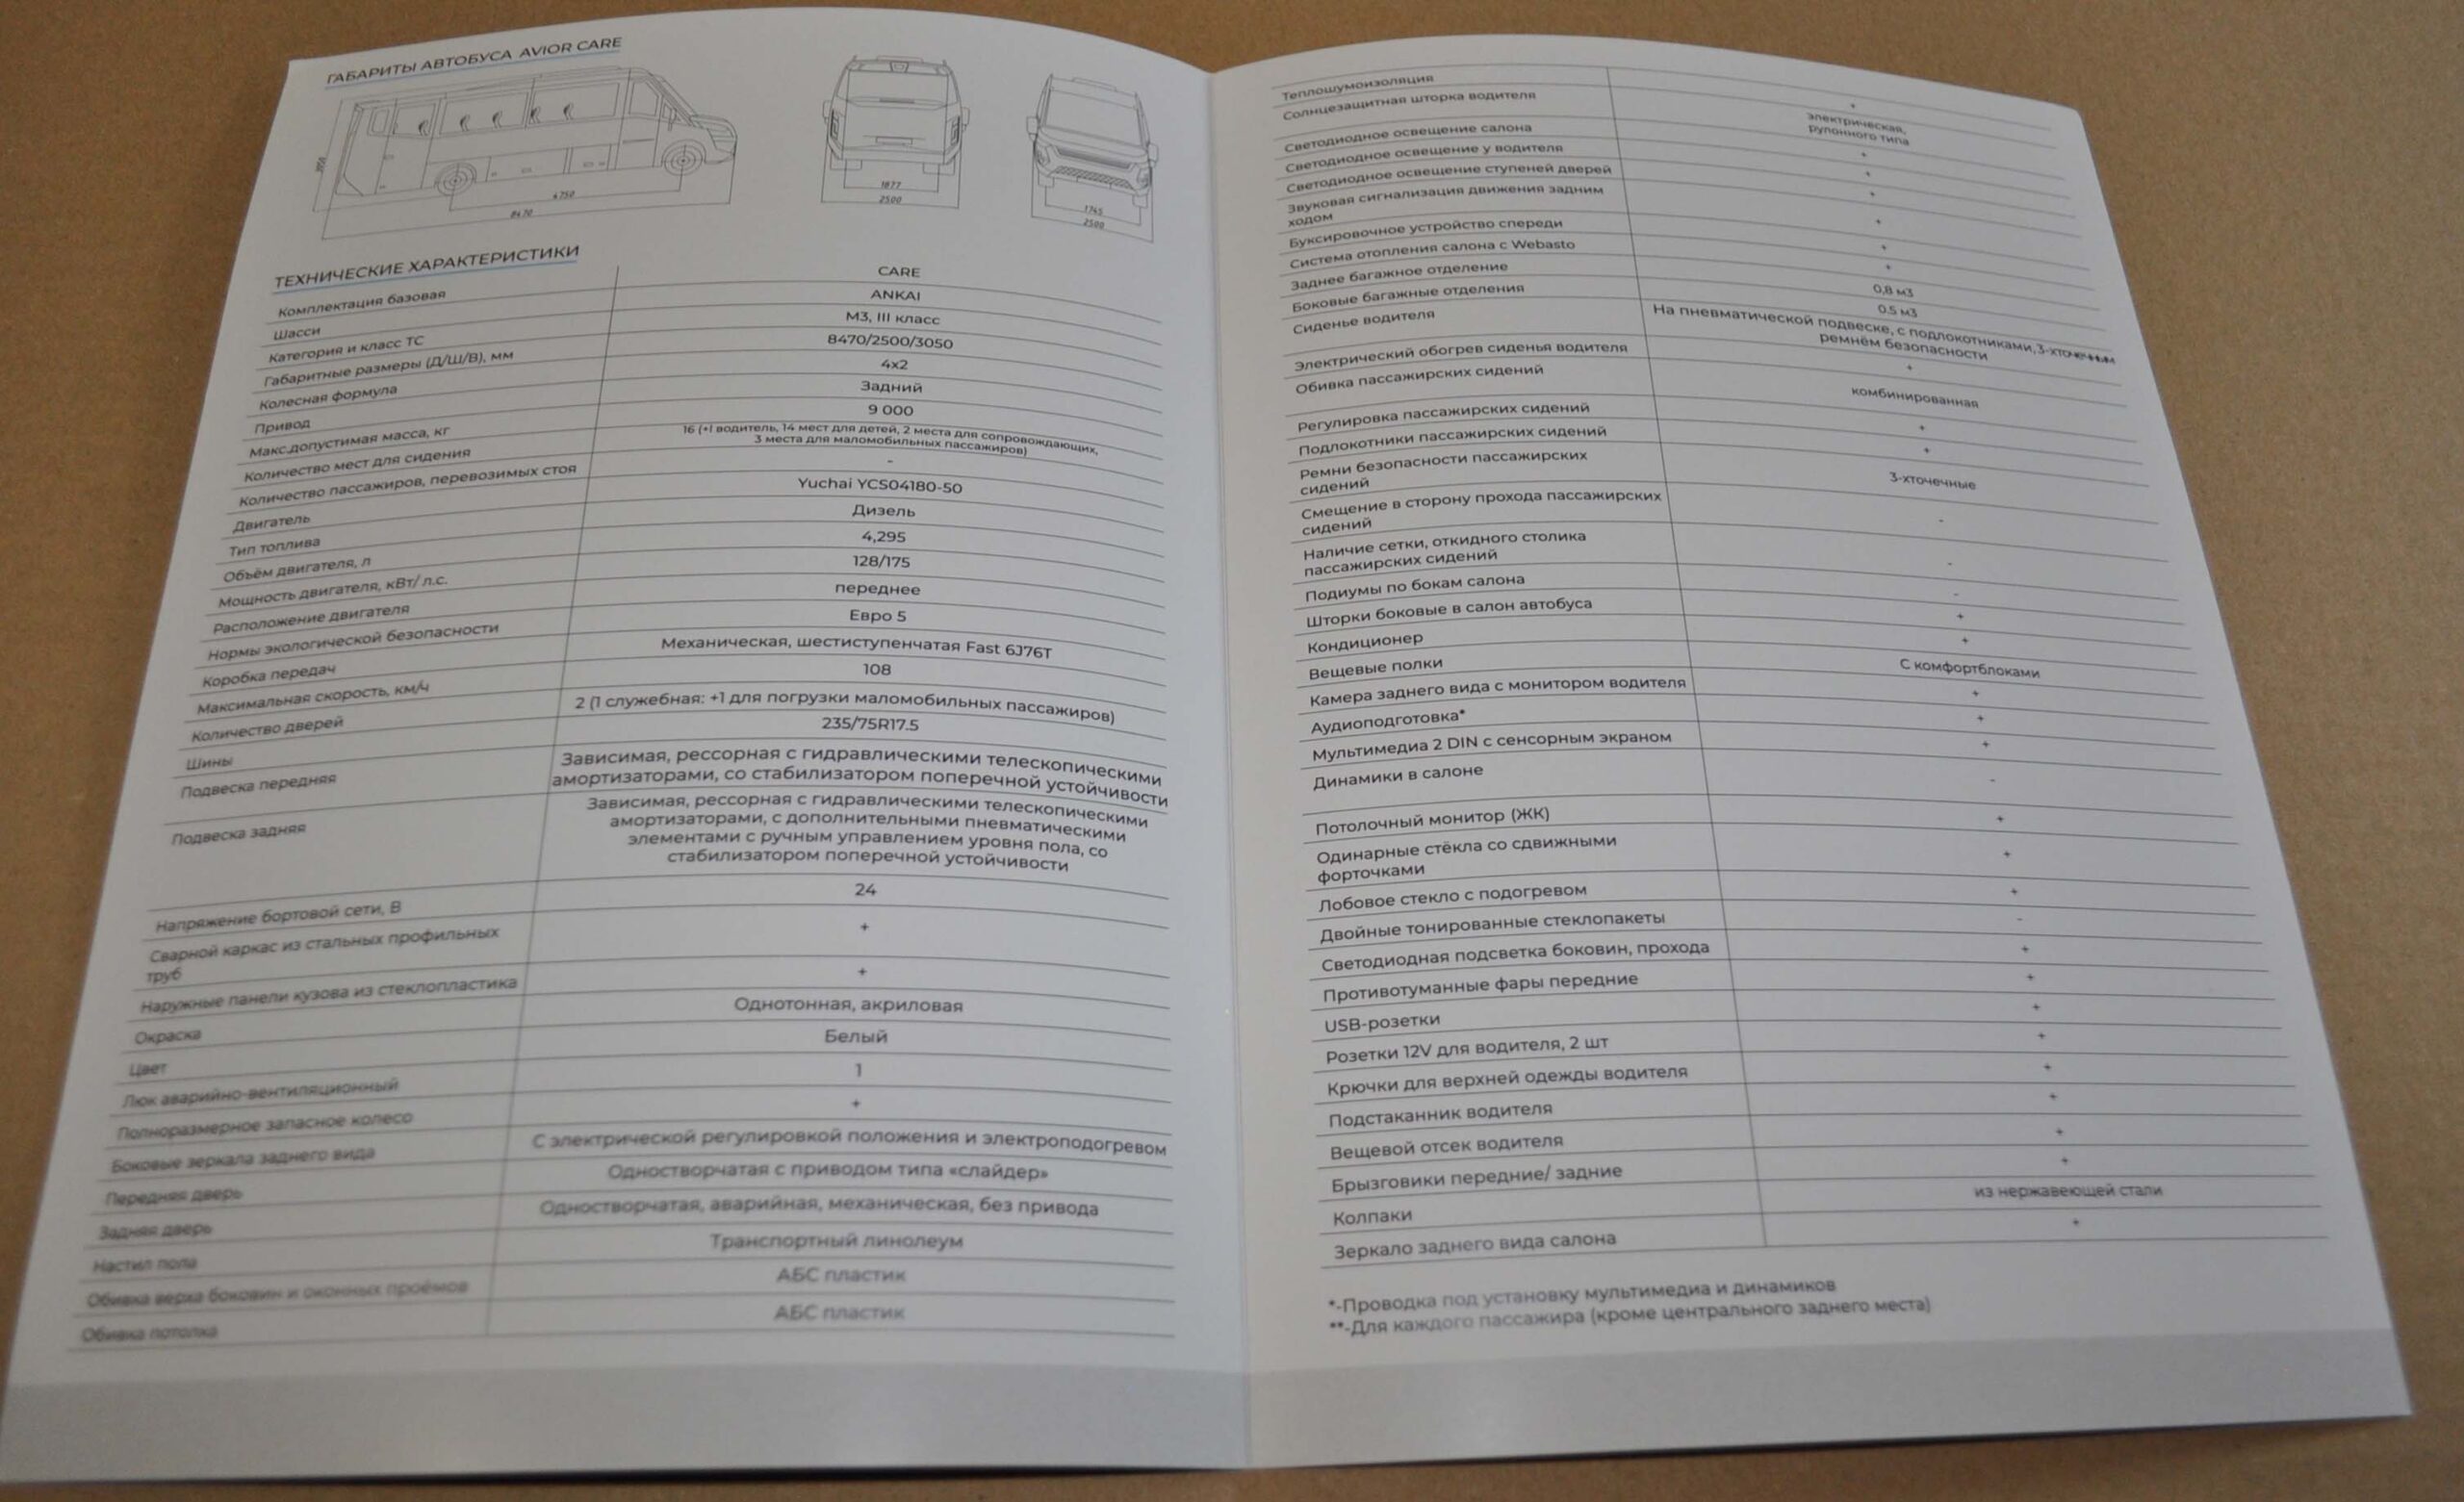 ГАБАРИТЫ АВТОБУСА AVIOR CARE
4750
8470
1877
2500
1745
2500
ТЕХНИЧЕСКИЕ ХАРАКТЕРИСТИКИ
Комплектация базовая CARE
Шасси ANKAI
Категория и класс ТС М3, III класс
Габаритные размеры (Д/Ш/В), мм 8470/2500/3050
Колесная формула 4x2
Привод Задний
Макс.допустимая масса, кг 9 000
Количество мест для сидения 16 (+1 водитель, 14 мест для детей, 2 места для сопровождающих,
3 места для маломобильных пассажиров)
Количество пассажиров, перевозимых стоя -
Двигатель Yuchai YCS04180-50
Тип топлива Дизель
Объём двигателя, л 4,295
Мощность двигателя, кВт/ л.с. 128/175
Расположение двигателя переднее
Нормы экологической безопасности Евро 5
Коробка передач Механическая, шестиступенчатая Fast 6J76T
Максимальная скорость, км/ч 108
Количество дверей 2 (1 служебная: +1 для погрузки маломобильных пассажиров)
Шины 235/75R17.5
Подвеска передняя Зависимая, рессорная с гидравлическими телескопическими
амортизаторами, со стабилизатором поперечной устойчивости
Подвеска задняя Зависимая, рессорная с гидравлическими телескопическими
амортизаторами, с дополнительными пневматическими
элементами с ручным управлением уровня пола, со
стабилизатором поперечной устойчивости
Напряжение бортовой сети, В 24
Сварной каркас из стальных профильных +
труб
Наружные панели кузова из стеклопластика +
Окраска Однотонная, акриловая
Цвет Белый
Люк аварийно-вентиляционный 1
Полноразмерное запасное колесо +
Боковые зеркала заднего вида С электрической регулировкой положения и электроподогревом
Передняя дверь Одностворчатая с приводом типа «слайдер»
Задняя дверь Одностворчатая, аварийная, механическая, без привода
Настил пола Транспортный линолеум
Обивка верха боковин и оконных проёмов АБС пластик
Обивка потолка АБС пластик
Теплошумоизоляция +
Солнцезащитная шторка водителя электрическая,
рулонного типа
Светодиодное освещение салона +
Светодиодное освещение у водителя +
Светодиодное освещение ступеней дверей +
Звуковая сигнализация движения задним +
ходом
Буксировочное устройство спереди +
Система отопления салона с Webasto +
Заднее багажное отделение 0,8 м3
Боковые багажные отделения 0.5 м3
Сиденье водителя На пневматической подвеске, с подлокотниками, 3-хточечным
ремнём безопасности
Электрический обогрев сиденья водителя +
Обивка пассажирских сидений комбинированная
Регулировка пассажирских сидений +
Подлокотники пассажирских сидений +
Ремни безопасности пассажирских 3-хточечные
сидений
Смещение в сторону прохода пассажирских -
сидений
Наличие сетки, откидного столика -
пассажирских сидений
Подиумы по бокам салона -
Шторки боковые в салон автобуса +
Кондиционер +
Вещевые полки С комфортблоками
Камера заднего вида с монитором водителя +
Аудиоподготовка* +
Мультимедиа 2 DIN с сенсорным экраном +
Динамики в салоне -
Потолочный монитор (ЖК) +
Одинарные стёкла со сдвижными +
форточками
Лобовое стекло с подогревом +
Двойные тонированные стеклопакеты -
Светодиодная подсветка боковин, прохода +
Противотуманные фары передние +
USB-розетки +
Розетки 12V для водителя, 2 шт +
Крючки для верхней одежды водителя +
Подстаканник водителя +
Вещевой отсек водителя +
Брызговики передние/ задние +
Колпаки из нержавеющей стали
Зеркало заднего вида салона +
*-Проводка под установку мультимедиа и динамиков
**-Для каждого пассажира (кроме центрального заднего места)